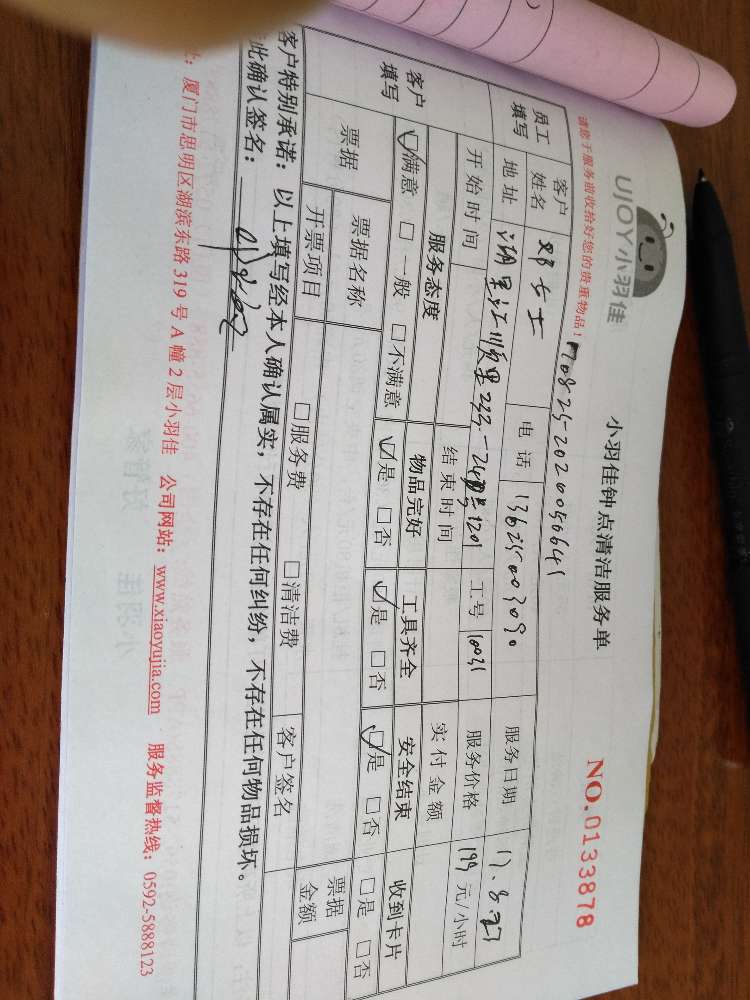 UJOY小羽佳
小羽佳钟点清洁服务单
NO.0133878
请您于服务前收拾好您的贵重物品！
员工填写 客户姓名 邓女士 电话 13625003090 服务日期 17.8.27
地址 工号 10031 服务价格 199 元/小时
开始时间 结束时间 实付金额
客户填写 服务态度 物品完好 工具齐全 安全结束 收到卡片
☑满意 □一般 □不满意 ☑是 □否 ☑是 □否 ☑是 □否 □是 □否
票据 票据名称 票据金额
开票项目 □服务费 □清洁费 客户签名
客户特别承诺：以上填写经本人确认属实，不存在任何纠纷，不存在任何物品损坏。
此确认签名：
厦门市思明区湖滨东路319号A幢2层小羽佳 公司网站：www.xiaoyujia.com 服务监督热线：0592-5888123